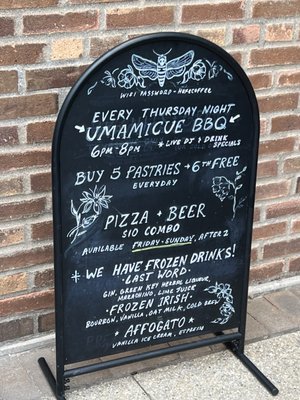 WIFI PASSWORD - HOPECOFFEE
EVERY THURSDAY NIGHT
UMAMICUE BBQ
6PM-8PM * LIVE DJ & DRINK SPECIALS
BUY 5 PASTRIES → 6TH FREE
EVERYDAY
PIZZA + BEER
$10 COMBO
AVAILABLE FRIDAY-SUNDAY, AFTER 2
* WE HAVE FROZEN DRINKS!
- LAST WORD -
GIN, GREEN KEY HERBAL LIQUEUR
MARASCHINO, LIME JUICE
- FROZEN IRISH -
BOURBON, VANILLA, OAT MILK, COLD BREW
* AFFOGATO *
VANILLA ICE CREAM, ESPRESSO